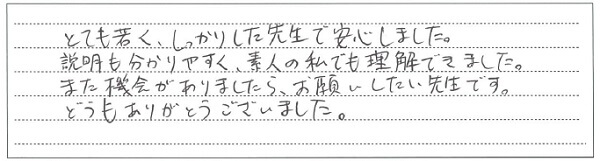 とても若く、しっかりした先生で安心しました。
説明も分かりやすく、素人の私でも理解できました。
また機会がありましたら、お願いしたい先生です。
どうもありがとうございました。